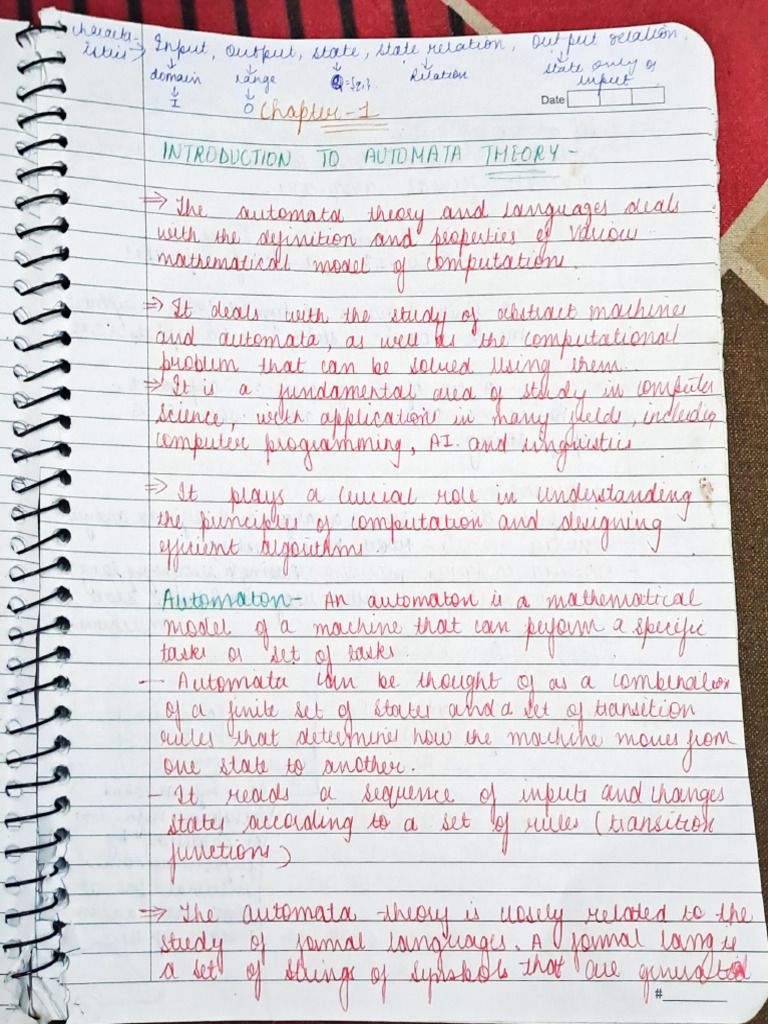 characte-
istics → Input, Output, state, state relation, Output relation.
domain range Q = {q, } Relation state only or
I O input
Date
Chapter-1
INTRODUCTION TO AUTOMATA THEORY-
⇒ The automata theory and languages deals
with the definition and properties of various
mathematical model of computations.
⇒ It deals with the study of abstract machines
and automata, as well as the computational
problem that can be solved using them.
⇒ It is a fundamental area of study in computer
science, with application in many fields, including
computer programming, AI. and linguistics
⇒ It plays a crucial role in understanding
the principles of computation and designing
efficient algorithms
Automaton- An automaton is a mathematical
model of a machine that can perform a specific
tasks or set of tasks.
- Automata can be thought of as a combination
of a finite set of states and a set of transition
rules that determines how the machine moves from
one state to another.
- It reads a sequence of inputs and changes
states according to a set of rules (transition
functions)
⇒ The automata theory is closely related to the
study of formal languages. A formal lang is
a set of strings of symbols that are generated
#